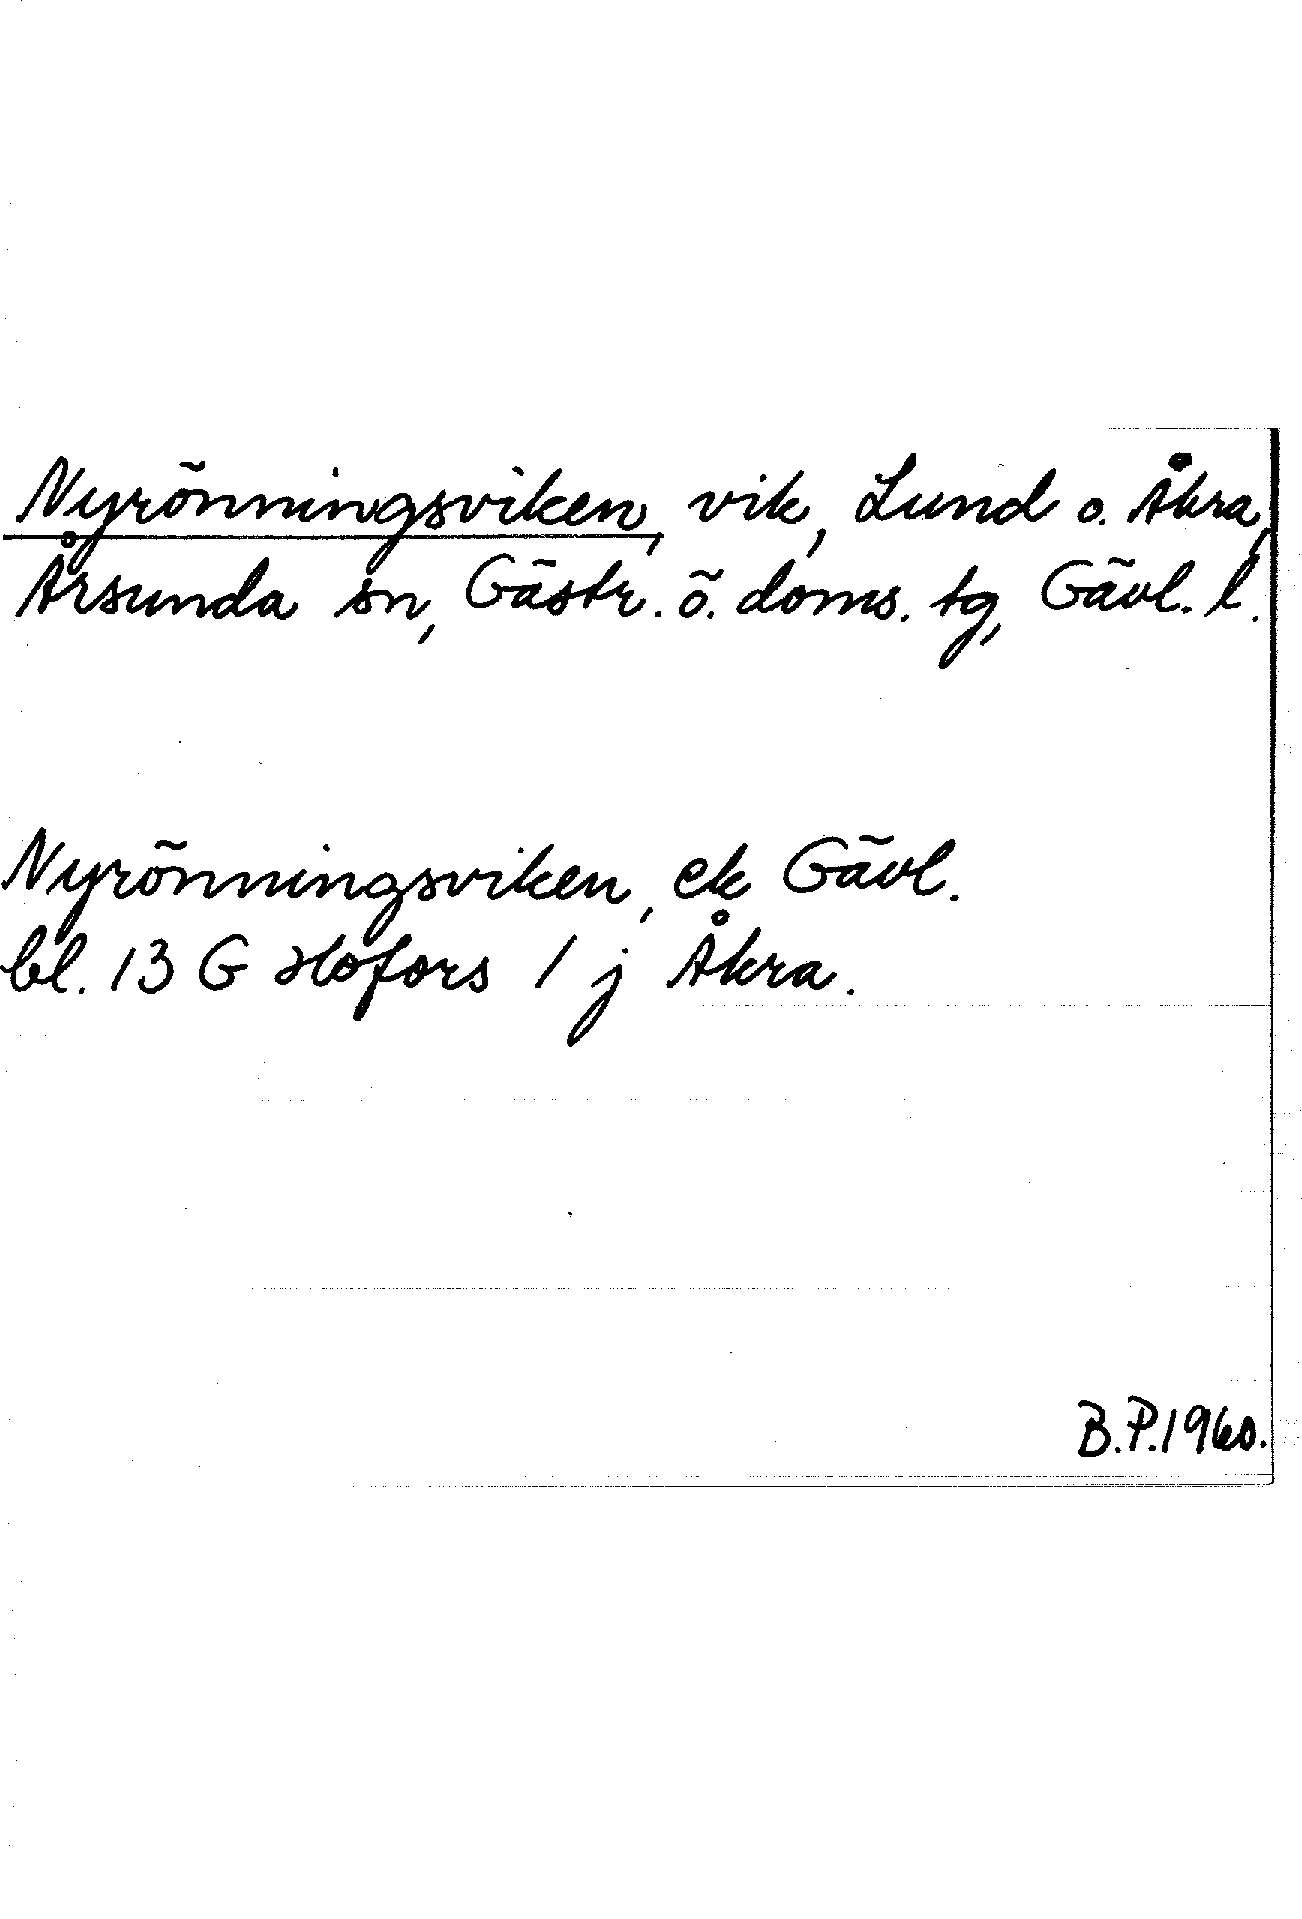 Nyrönningsviken, vik, Lund o. Åkra,
Årsunda sn, Gästr. ö. doms. tg, Gävl. l.
Nyrönningsviken, ek Gävl.
bl. 13 G Hofors 1 j Åkra.
B.P.1960.